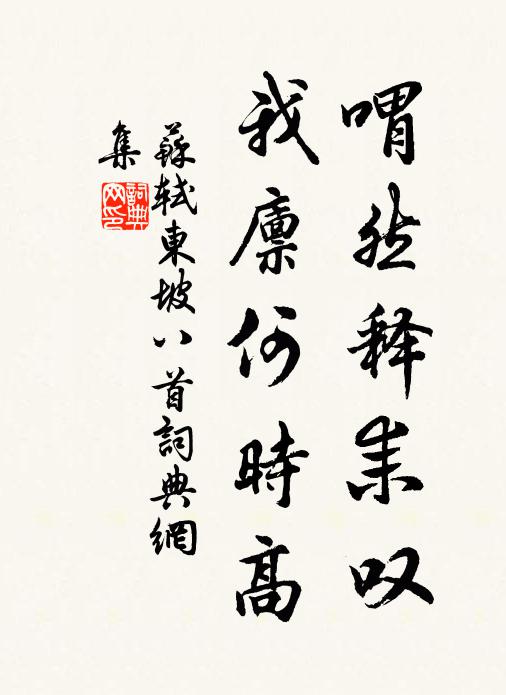 喟然释耒叹
我廪何時高
蘇軾東坡八首詞典網
集
詞典
网印